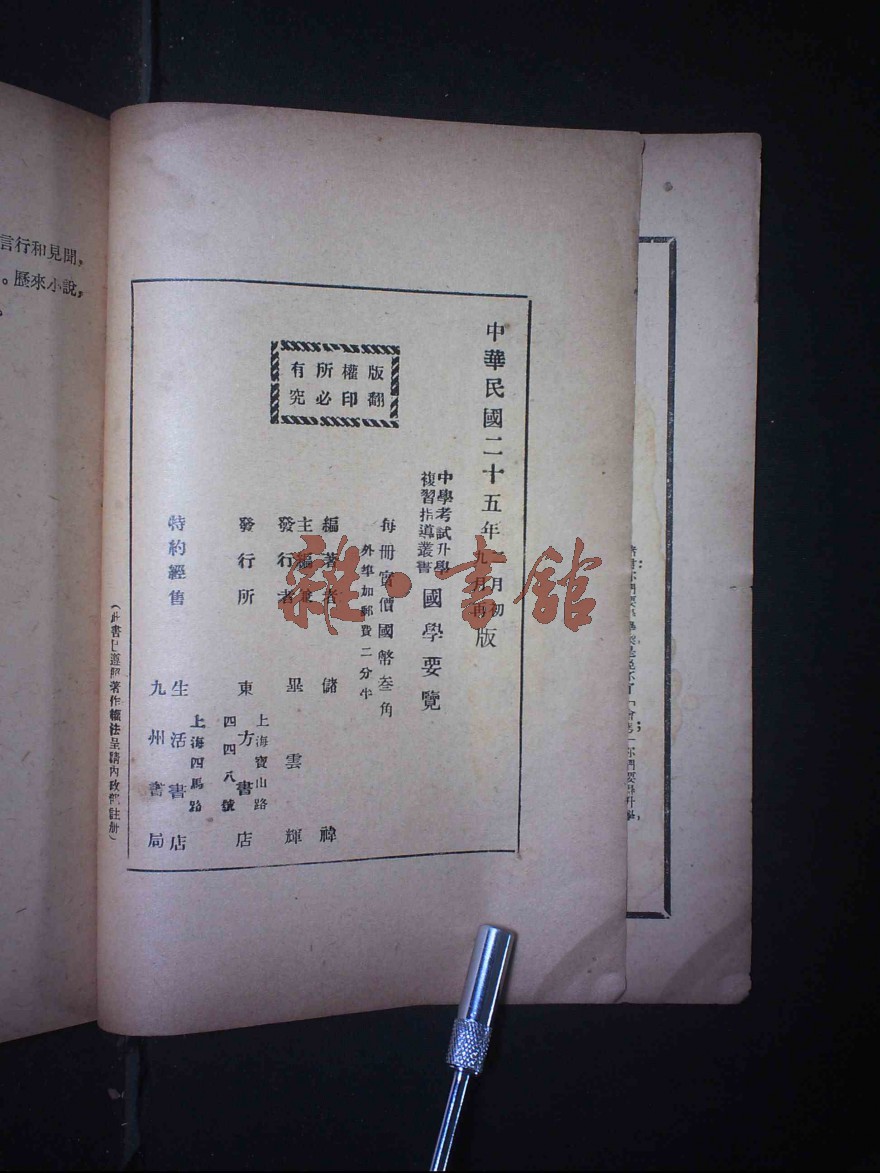 中華民國二十五年
月初
九月再
版
中學考試升學
複習指導叢書
國學要覽
每冊實價國幣叁角
外埠加郵費二分半
版權所有
翻印必究
編著者 儲禕
主編兼
發行者 畢雲輝
發行所 東方書店
上海寶山路
四四八號
特約經售
上海四馬路
生活書店
九州書局
(此書已遵照著作權法呈請內政部註冊)
言行和見聞,
。歷來小說,
雜·書館